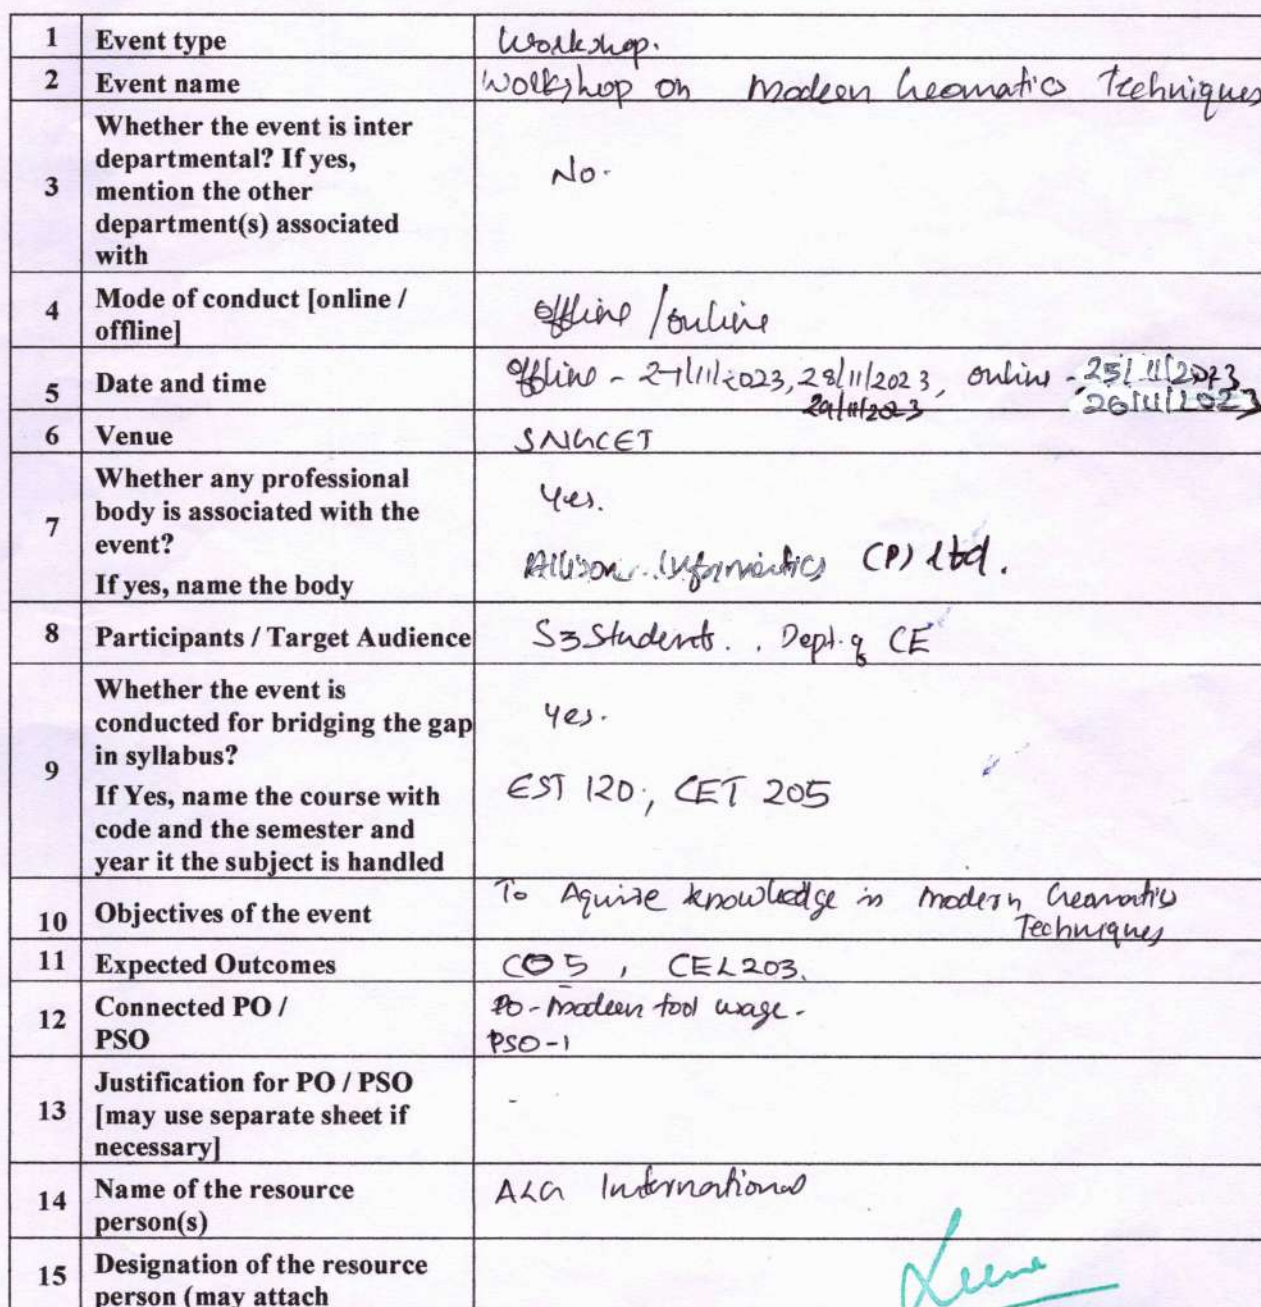 1 Event type Workshop.
2 Event name Workshop on Modern Geomatics Techniques
Whether the event is inter
departmental? If yes,
3 mention the other No.
department(s) associated
with
4 Mode of conduct [online / offline/online
offline]
5 Date and time Offline - 27/11/2023, 28/11/2023, online - 25/11/2023
29/11/2023 26/11/2023
6 Venue SNGCET
Whether any professional Yes.
body is associated with the
7 event?
If yes, name the body Informatics (P) Ltd.
8 Participants / Target Audience S3 Students.. Dept. of CE
Whether the event is
conducted for bridging the gap Yes.
in syllabus?
9
If Yes, name the course with EST 120, CET 205
code and the semester and
year it the subject is handled
10 Objectives of the event To Aquire knowledge in Modern Geomatics
Techniques
11 Expected Outcomes CO5, CEL203.
12 Connected PO / PO - Modern tool usage.
PSO PSO-1
Justification for PO / PSO
13 [may use separate sheet if -
necessary]
14 Name of the resource ALG International
person(s)
15 Designation of the resource
person (may attach